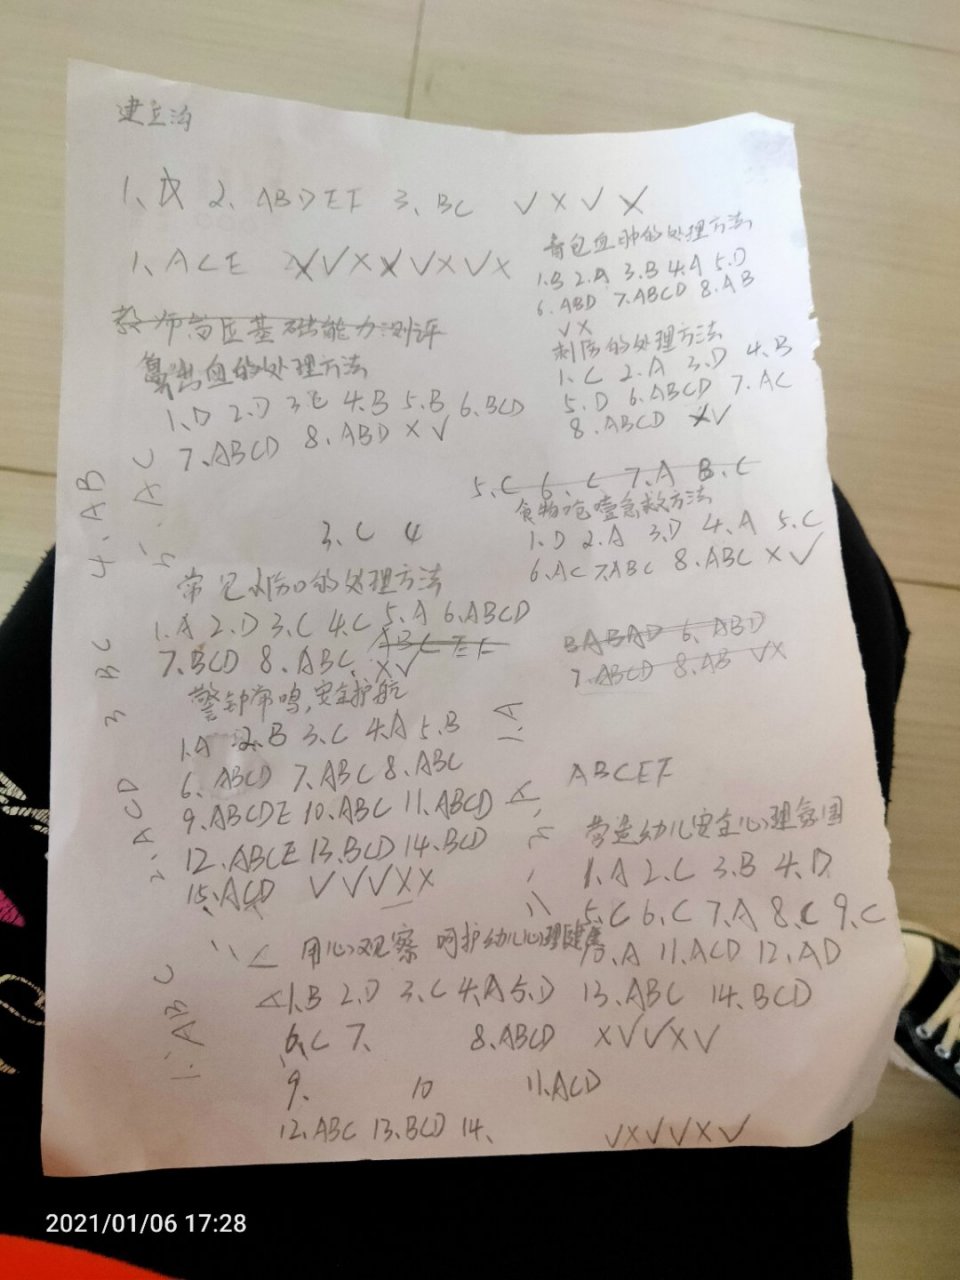 建立沟
1、 2、ABDEF 3、BC √×√×
1、ACE √×√×√×
教师 基础能力测评
鼻出血的处理方法
1、D 2、D 3、C 4、B 5、B 6、BCD
7、ABCD 8、ABD ×√
头包血肿的处理方法
1、B 2、A 3、B 4、A 5、D
6、ABD 7、ABCD 8、AB
√×
刺伤的处理方法
1、C 2、A 3、D 4、B
5、D 6、ABCD 7、AC
8、ABCD √
5、C 6、C 7、A 8、C
食物呛噎急救方法
1、D 2、A 3、D 4、A 5、C
6、AC 7、ABC 8、ABC ×√
3、C 4
常见小伤口的处理方法
1、A 2、D 3、C 4、C 5、A 6、ABCD
ABC EF
7、BCD 8、ABC ×√
BABAD 6、ABD
7、ABCD 8、AB √×
警钟常鸣,安全护航
1、A 2、B 3、C 4、A 5、B
6、ABCD 7、ABC 8、ABC
9、ABCDE 10、ABC 11、ABCD
12、ABCE 13、BCD 14、BCD
15、ACD √√√××
ABCEF
营造幼儿安全心理氛围
1、A 2、C 3、B 4、D
5、C 6、C 7、A 8、C 9、C
10、A 11、ACD 12、AD
13、ABC 14、BCD
×√√×√
用心观察 呵护幼儿心理健康
1、B 2、D 3、C 4、A 5、D
6、C 7、 8、ABCD
9、 10 11、ACD
12、ABC 13、BCD 14、 √×√√×√
1、ABC
2、ACD
3 BC
4、AB
5、AC